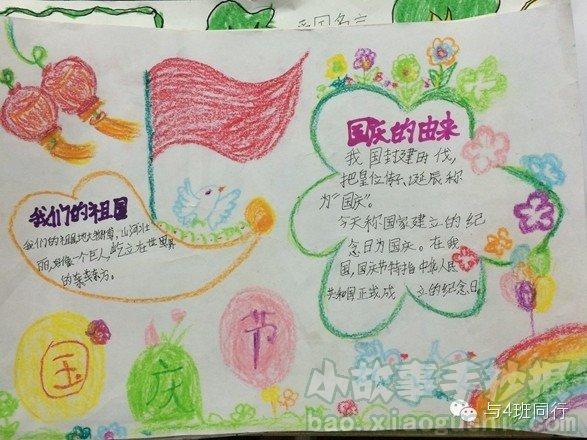 爱国名言
我们的祖国
我们的祖国地大物博，山河壮
丽，好像一个巨人，屹立在世界
的东方。
国庆的由来
我国封建时代，
把皇位传、诞辰称
为“国庆”。
今天称国家建立的纪
念日为国庆。在我
国，国庆节特指中华人民
共和国正式成 立的纪念日。
国
庆
节
小故事手抄报
bao.xiaogushi
与4班同行